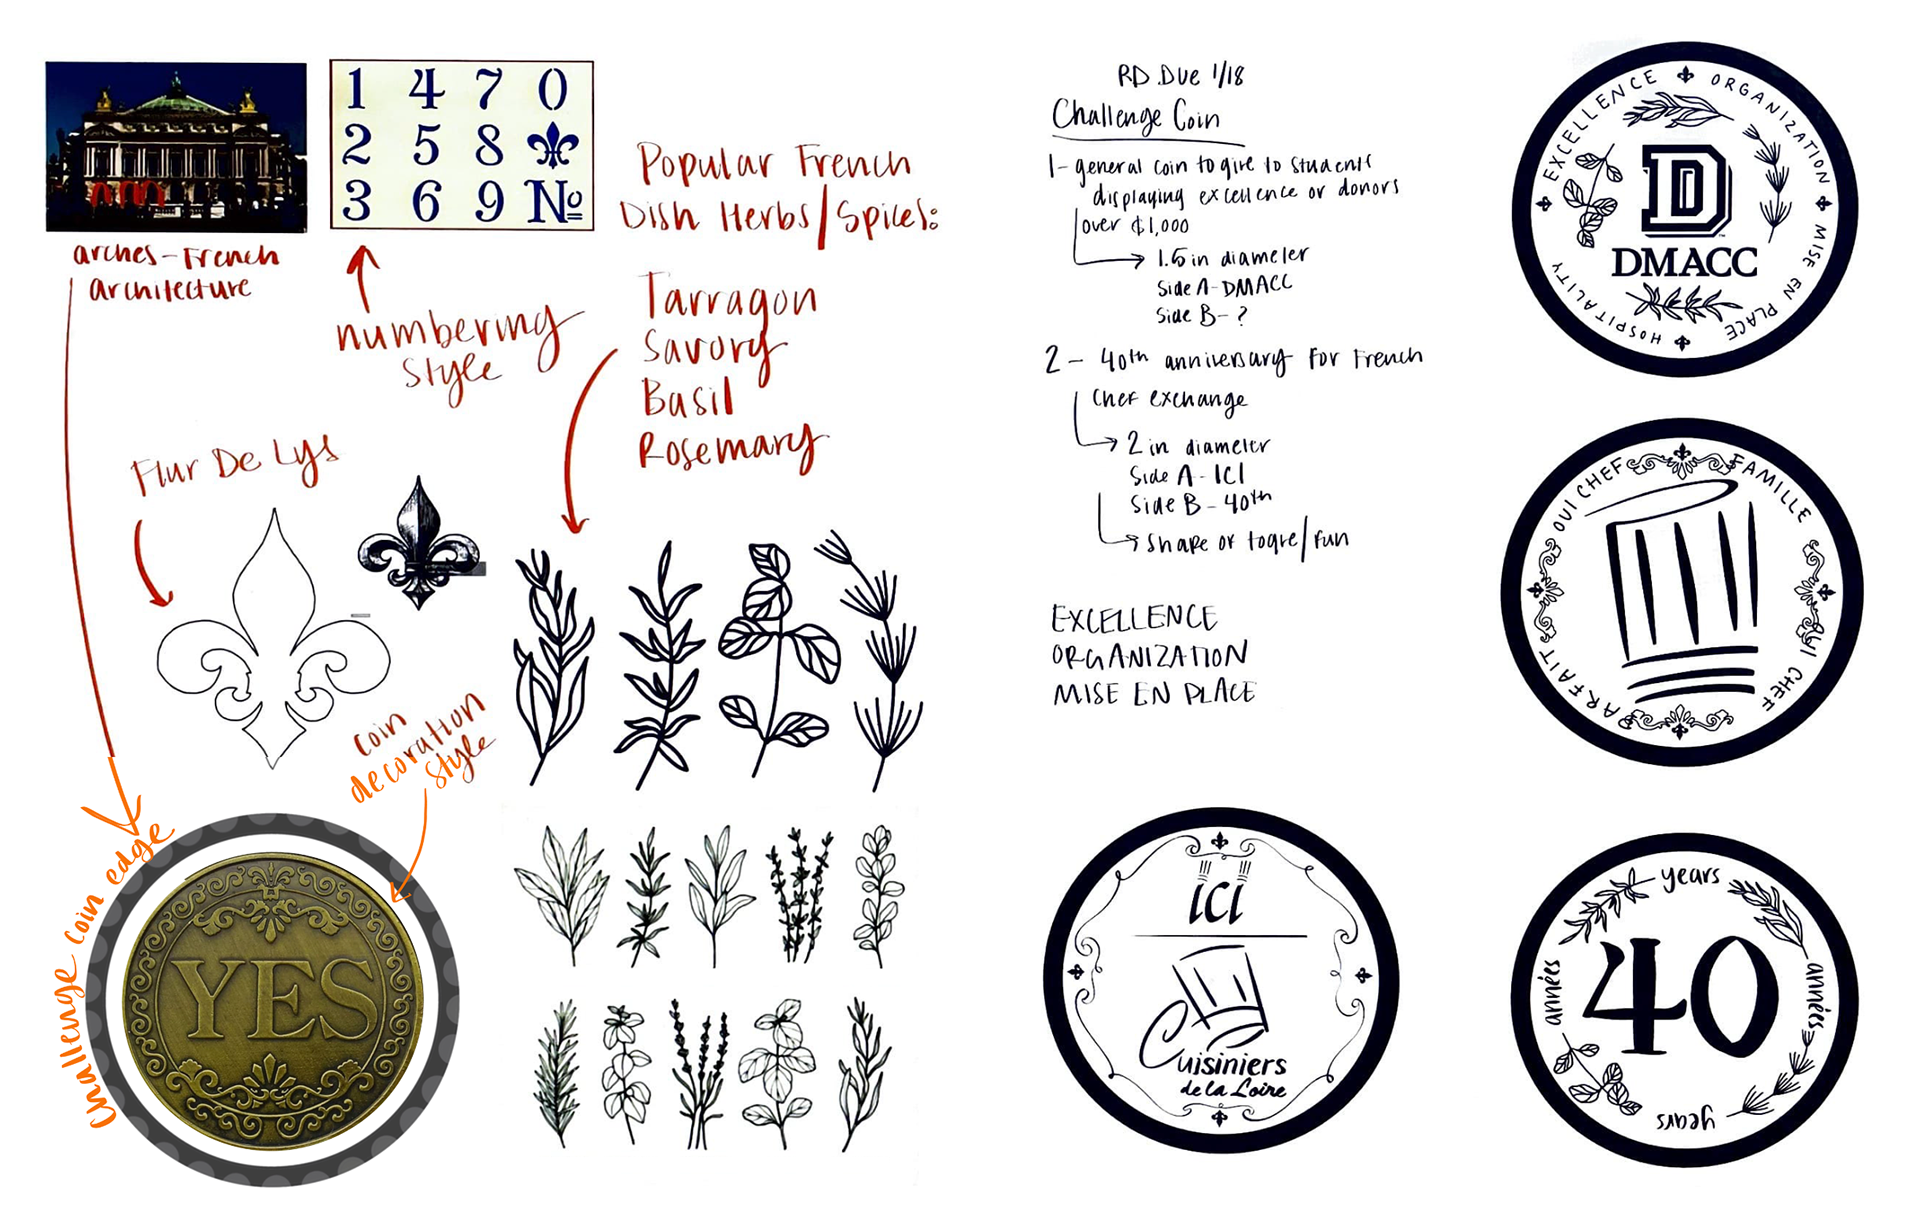 1 4 7 0
2 5 8
3 6 9 No
arches-French
architecture
numbering
style
Popular French
Dish Herbs/Spices:
Tarragon
Savory
Basil
Rosemary
Flur De Lys
coin
decoration
style
Challenge coin edge
YES
RD Due 1/18
Challenge Coin
1- general coin to give to students
displaying excellence or donors
over $1,000
1.5 in diameter
Side A-DMACC
Side B- ?
2- 40th anniversary for French
chef exchange
2 in diameter
Side A-ICI
Side B-40th
shape of toque/fun
EXCELLENCE
ORGANIZATION
MISE EN PLACE
EXCELLENCE ORGANIZATION MISE EN PLACE HOSPITALITY
D
DMACC
OUI CHEF FAMILLE OUI CHEF PARFAIT
ICI
Cuisiniers
de la Loire
years
années
40
années
years